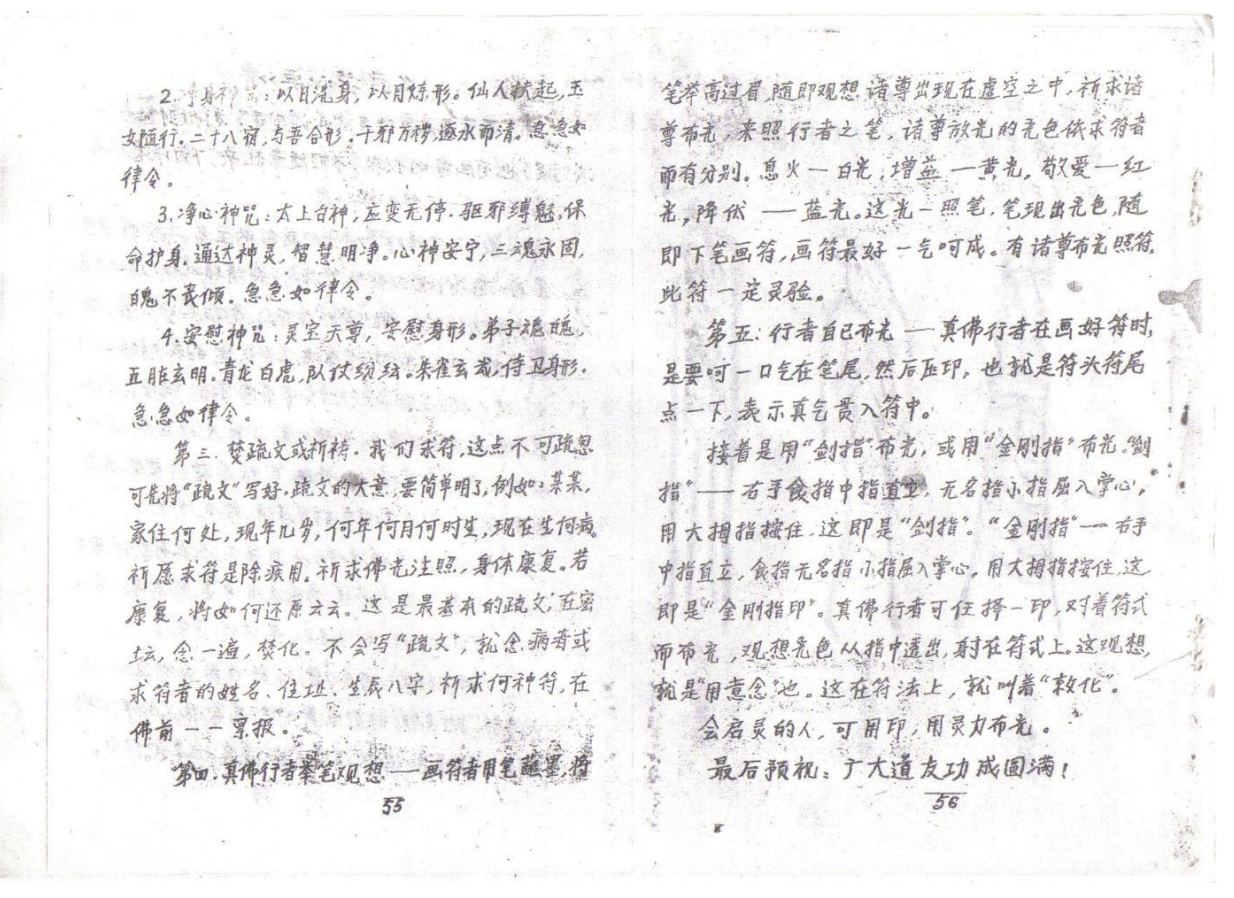 2. 净身神咒：以日洗身，以月炼形。仙人扶起，玉
女随行。二十八宿，与吾合形。千邪万秽，逐水而清。急急如
律令。
3. 净心神咒：太上台神，应变无停。驱邪缚魅，保
命护身。通达神灵，智慧明净。心神安宁，三魂永固，
魄不丧倾。急急如律令。
4. 安慰神咒：灵宝天尊，安慰身形。弟子魂魄，
五脏玄明。青龙白虎，队仗纷纭。朱雀玄武，侍卫身形。
急急如律令。
第三．焚疏文或祈祷．我们求符，这点不可疏忽
可先将“疏文”写好，疏文的大意，要简单明了，例如：某某，
家住何处，现年几岁，何年何月何时生，现在生何病。
祈愿求符是除疾用。祈求佛光注照，身体康复。若
康复，将如何还原云云。这是最基本的疏文，在密
坛，念一遍，焚化。不会写“疏文”，就念病者或
求符者的姓名、住址、生辰八字，祈求何种符，在
佛前一一禀报。
第四．真佛行者举笔观想——画符者用笔蘸墨，将
55
笔举高过眉，随即观想诸尊出现在虚空之中，祈求诸
尊布光，来照行者之笔，诸尊放光的光色依求符者
而有分别。息火—白光，增益—黄光，敬爱—红
光，降伏——蓝光。这光一照笔，笔现出光色，随
即下笔画符，画符最好一气呵成。有诸尊布光照符，
此符一定灵验。
第五：行者自己布光——真佛行者在画好符时，
是要呵一口气在笔尾，然后压印，也就是符头符尾
点一下，表示真气贯入符中。
接着是用“剑指”布光，或用“金刚指”布光。“剑
指”——右手食指中指直立，无名指小指屈入掌心，
用大拇指按住，这即是“剑指”。“金刚指”——右手
中指直立，食指无名指小指屈入掌心，用大拇指按住，这
即是“金刚指印”。真佛行者可任择一印，对着符式
而布光，观想光色从指中透出，射在符式上。这观想，
就是“用意念”也。这在符法上，就叫着“敕化”。
会启灵的人，可用印，用灵力布光。
最后预祝：广大道友功成圆满！
56